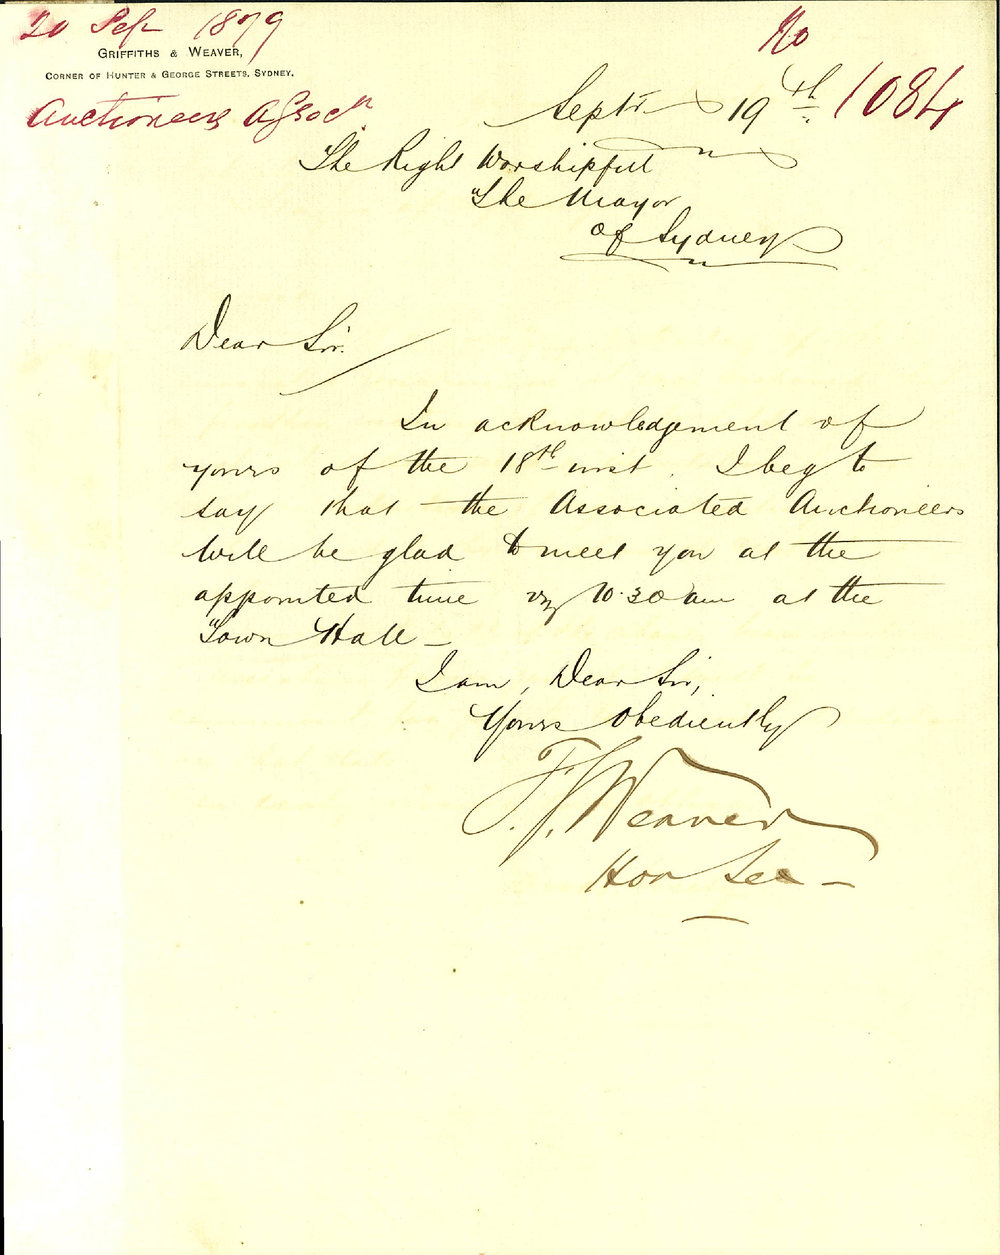 20 Sep 1879
No
GRIFFITHS & WEAVER,
CORNER OF HUNTER & GEORGE STREETS, SYDNEY.
Auctioneers Assocn
Septr 19th 1084
The Right Worshipful
The Mayor
of Sydney
Dear Sir.
In acknowledgement of
yours of the 18th inst. I beg to
say that the Associated Auctioneers
will be glad to meet you at the
appointed time viz 10.30 am at the
Town Hall —
I am, Dear Sir,
Yours Obediently
F. J. Weaver
Hon Sec —